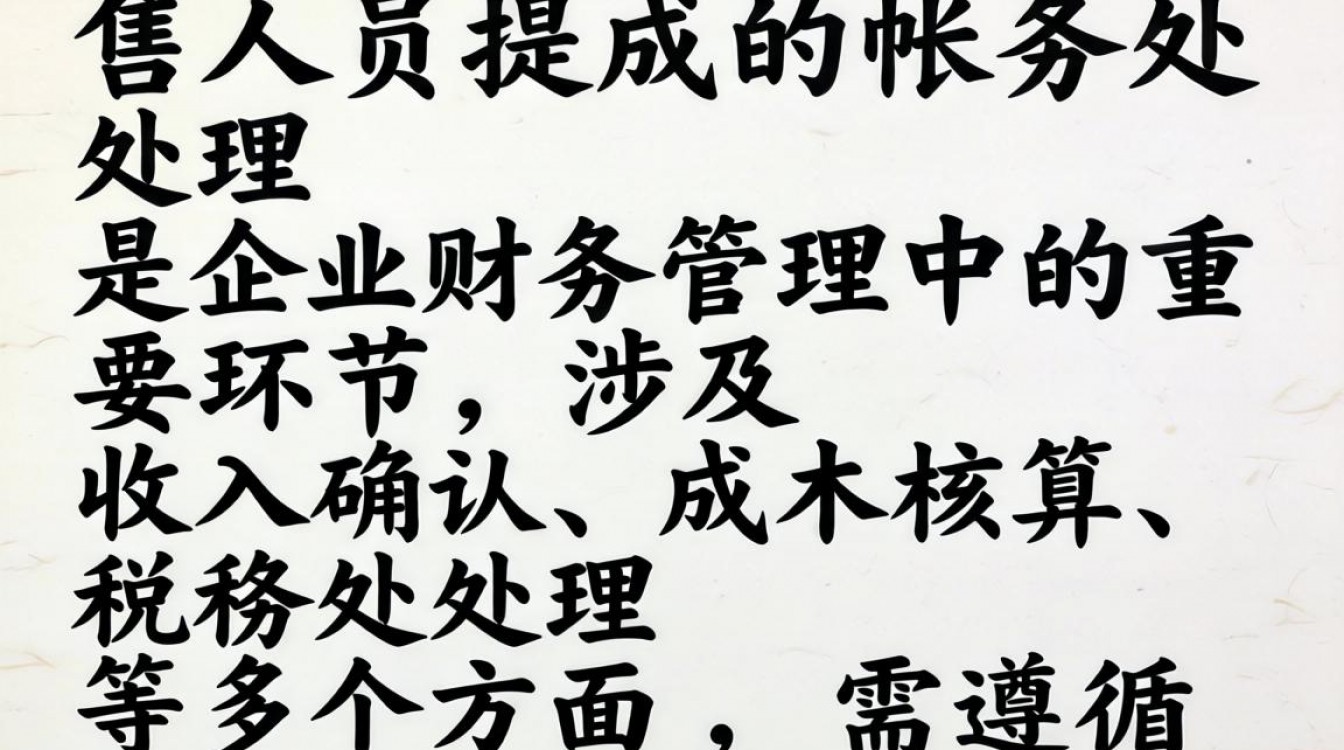 售人员提成的帐务处
处理
是企业财务管理中的重
要环节，涉及
收入确认、成木核算、
税务处处理
等多个方面，需遵循